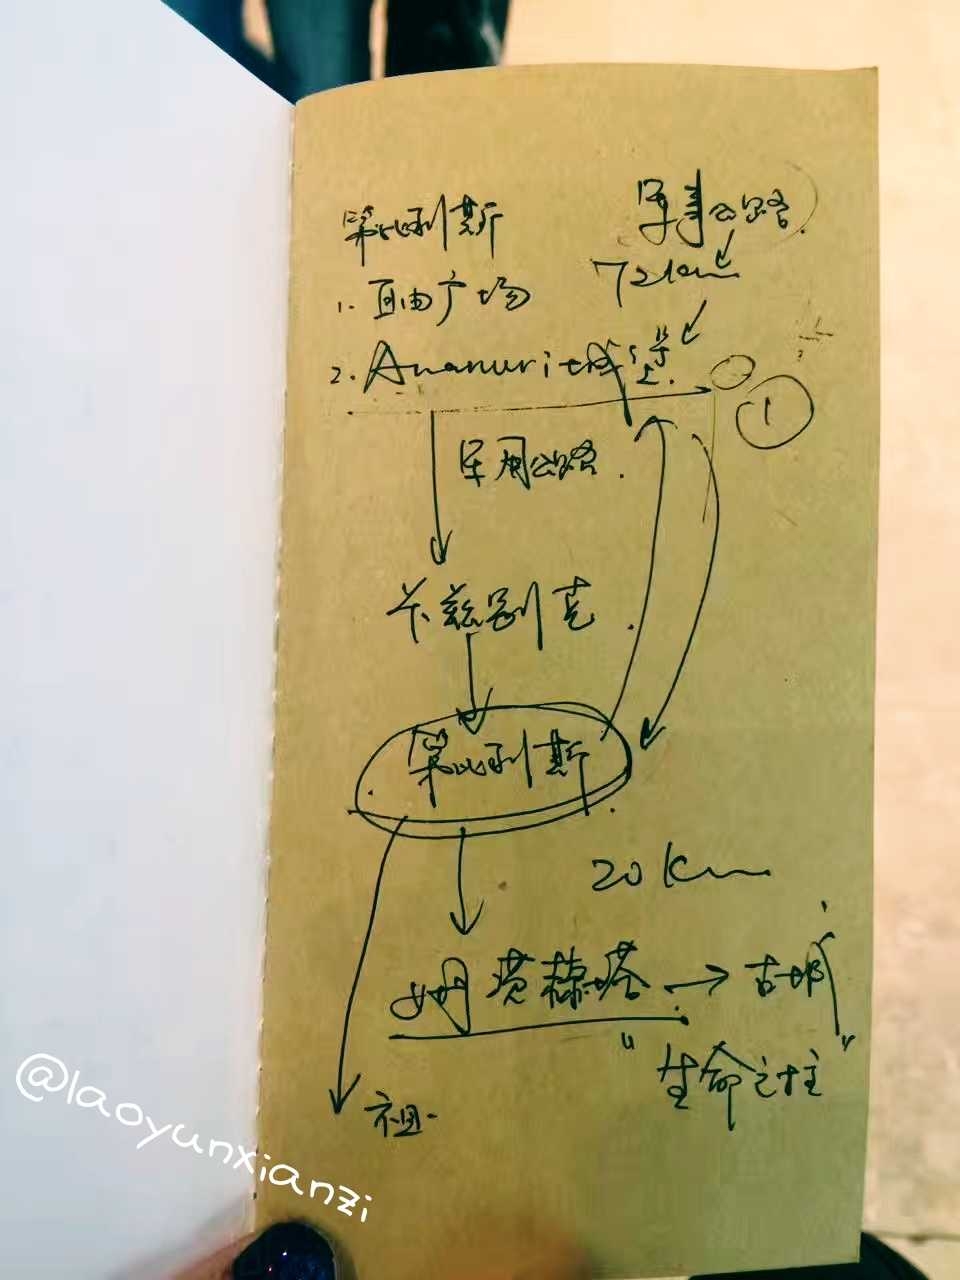 第比利斯
军事公路
72km
1. 自由广场
2. Ananuri 城堡
1
军用公路
卡兹别克
第比利斯
20 km
姆茨赫塔 → 古城
"生命之柱"
祖
@laoyunxianzi